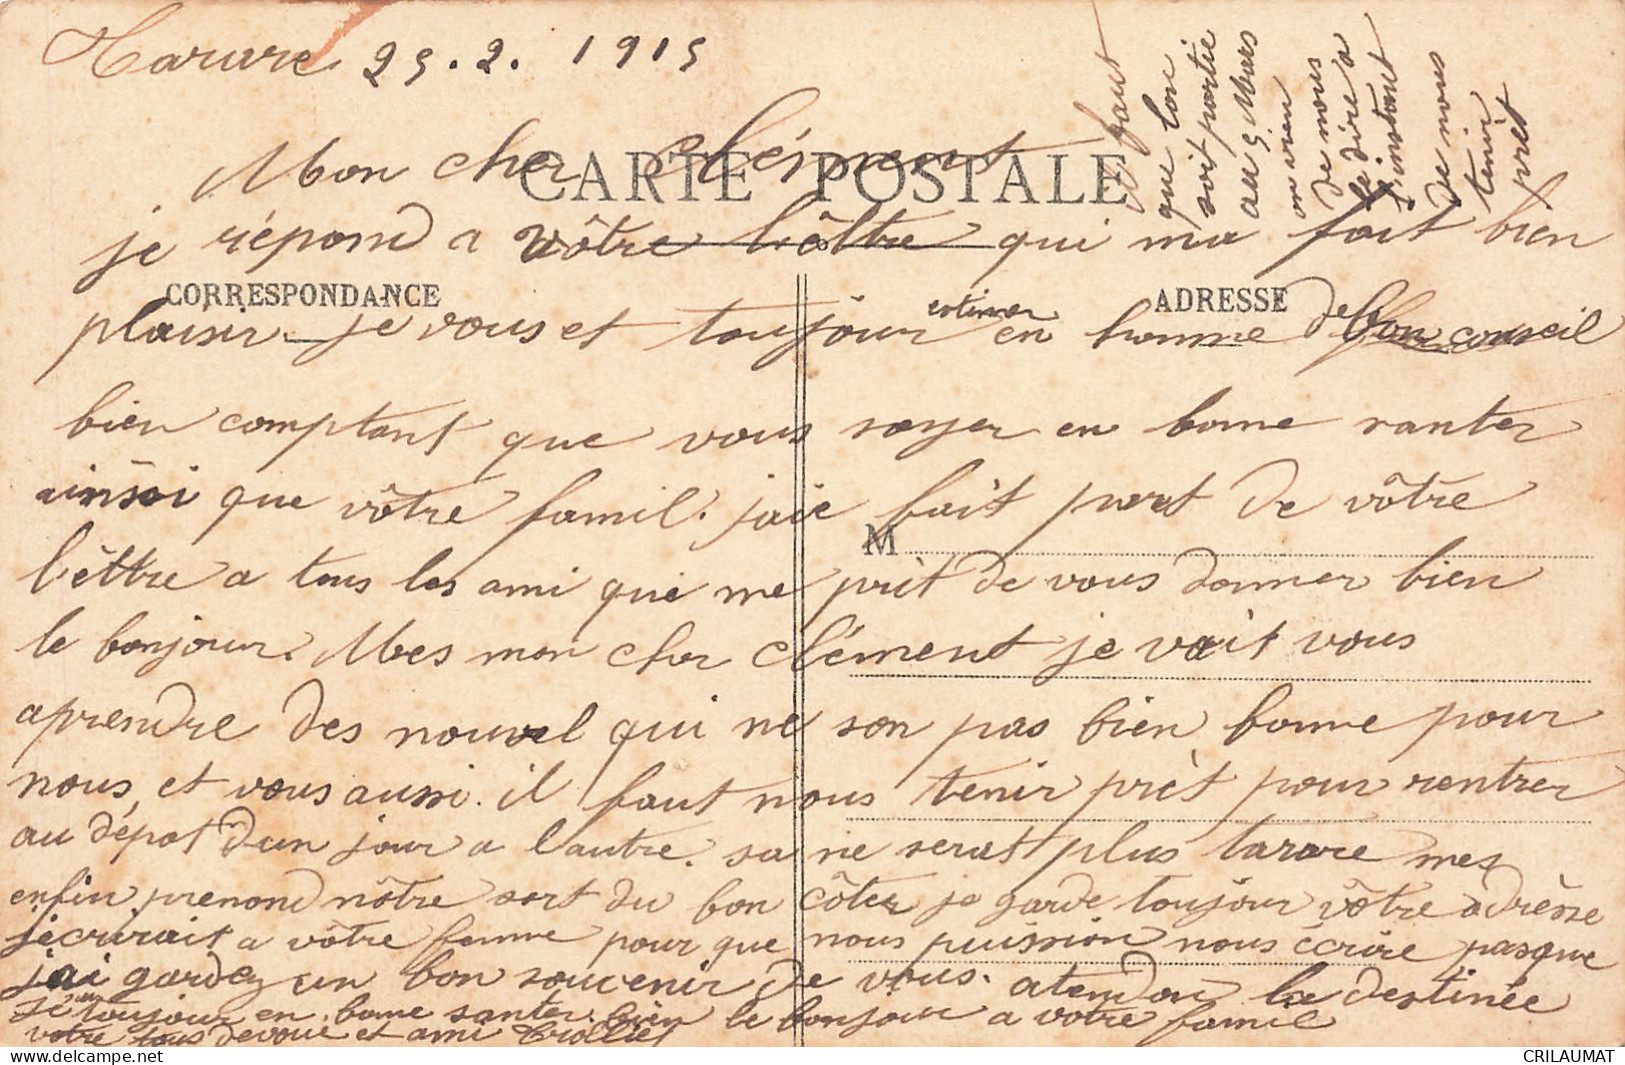 Tarare. 25. 2. 1915
Mon cher Clément
CARTE POSTALE
je répond a vôtre lèttre qui ma fait bien
CORRESPONDANCE
ADRESSE
plaisir. je vous et toujour estimer en homme de bon conseil
bien comptant que vous soyer en bonne santer
ainsoi que vôtre famil. jaie fait part de vôtre
lêttre a tous les ami qui me prit de vous donner bien
M
le bonjour. Mes mon cher Clément je vait vous
aprendre des nouvel qui ne son pas bien bonne pour
nous, et vous aussi. il faut nous tenir prèt pour rentrer
au dépot dun jour a lautre. sa ne serat plus tarare mes
enfin prenond nôtre sort du bon côter je garde toujour vôtre adrèsse
jécrirait a vôtre femme pour que nous puission nous écrire pasque
jai gardez un bon souvenir de vous. atendon la destinée
toujour en bonne santer. bien le bonjour a votre famil
votre tous devoue et ami
il faut
que lon
soit partie
au 5 Mars
on vien
de nous
le dire a
linstant
de nous
tenir
pret
CRILAUMAT
delcampe.net